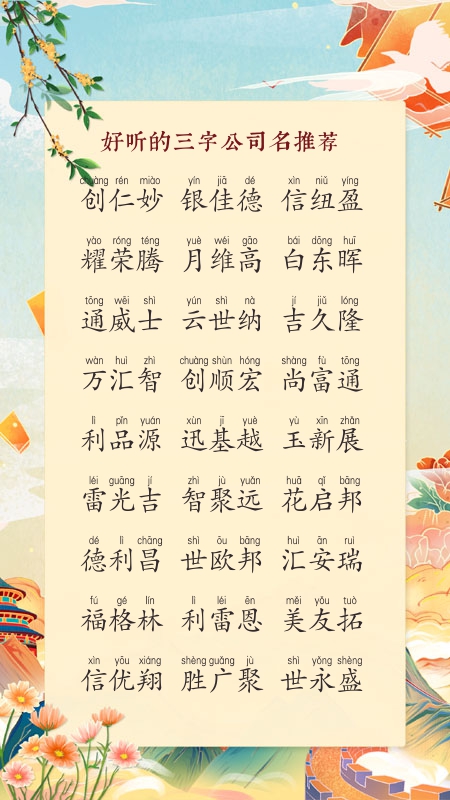 好听的三字公司名推荐
chuàng rén miào yín jiā dé xìn niǔ yíng
创仁妙 银佳德 信纽盈
yào róng téng yuè wéi gāo bái dōng huī
耀荣腾 月维高 白东晖
tōng wēi shì yún shì nà jí jiǔ lóng
通威士 云世纳 吉久隆
wàn huì zhì chuàng shùn hóng shàng fù tōng
万汇智 创顺宏 尚富通
lì pǐn yuán xùn jī yuè yù xīn zhǎn
利品源 迅基越 玉新展
léi guāng jí zhì jù yuǎn huā qǐ bāng
雷光吉 智聚远 花启邦
dé lì chāng shì ōu bāng huì ān ruì
德利昌 世欧邦 汇安瑞
fú gé lín lì léi ēn měi yǒu tuò
福格林 利雷恩 美友拓
xìn yōu xiáng shèng guǎng jù shì yǒng shèng
信优翔 胜广聚 世永盛